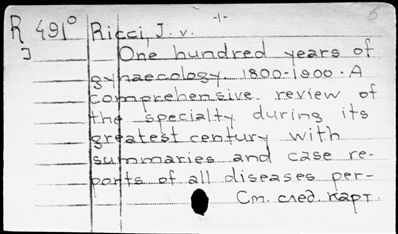 -1-
6
R 491° Ricci, J. v.
J
One hundred years of
gynaecology. 1800-1900. A
comprehensive review of
the specialty during its
greatest century with
summaries and case re-
ports of all diseases per-
См. след. карт.